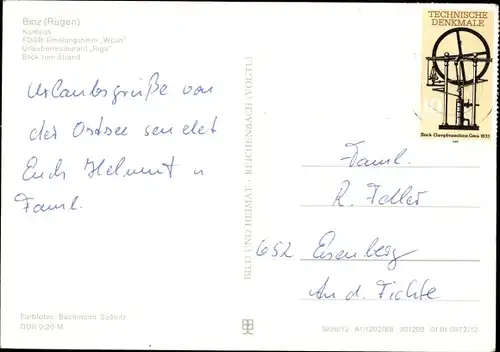 Binz (Rügen)
Kurhaus
FDGB-Erholungsheim „Wolin“
Urlauberrestaurant „Riga“
Blick zum Strand
Urlaubsgrüße von
der Ostsee sendet
Euch Helmut u
Faml.
Farbfotos: Bachmann, Saßnitz
DDR 0,20 M
BILD UND HEIMAT · REICHENBACH (VOGTL)
TECHNISCHE
DENKMALE
Bock-Dampfmaschine, Gera 1833
Faml.
R. Fedler
652 Eisenberg
An d. Fichte
A1/1202/88 301209 01 01 0972/12